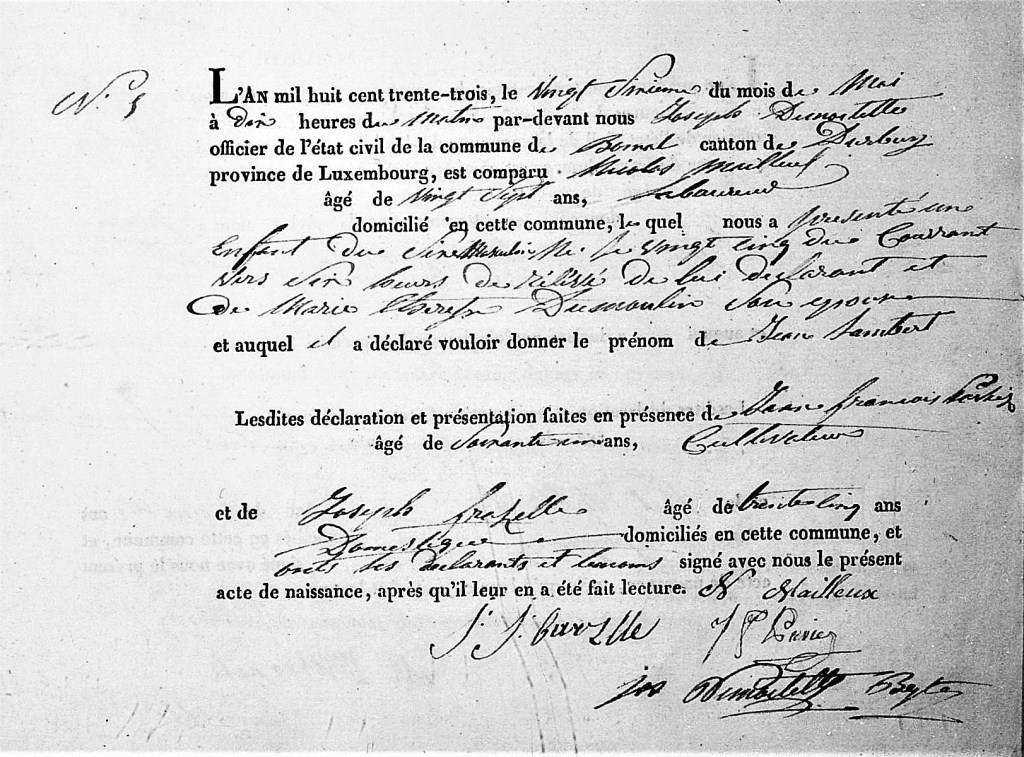 N.° 5
L'AN mil huit cent trente-trois, le vingt Sixieme du mois de Mai
à dix heures du Matin par-devant nous Joseph Dumortelle
officier de l'état civil de la commune de Bomal canton de Durbuy
province de Luxembourg, est comparu Nicolas Mailleux
âgé de vingt Sept ans, Laboureur
domicilié en cette commune, lequel nous a présenté un
Enfant du Sexe Masculin Né le vingt cinq du Courrant
vers Six heurs de de lui declarant et
de Marie Therese Dumoulin Son epouse
et auquel il a déclaré vouloir donner le prénom de Jean Lambert
Lesdites déclaration et présentation faites en présence de Jean francois
âgé de Soixante ans, Cultivateur
et de Joseph âgé de trente Cinq ans
Domestique domiciliés en cette commune, et
ont les declarants et temoins signé avec nous le présent
acte de naissance, après qu'il leur en a été fait lecture. N Mailleux
J. J.
J F
jos Dumortelle